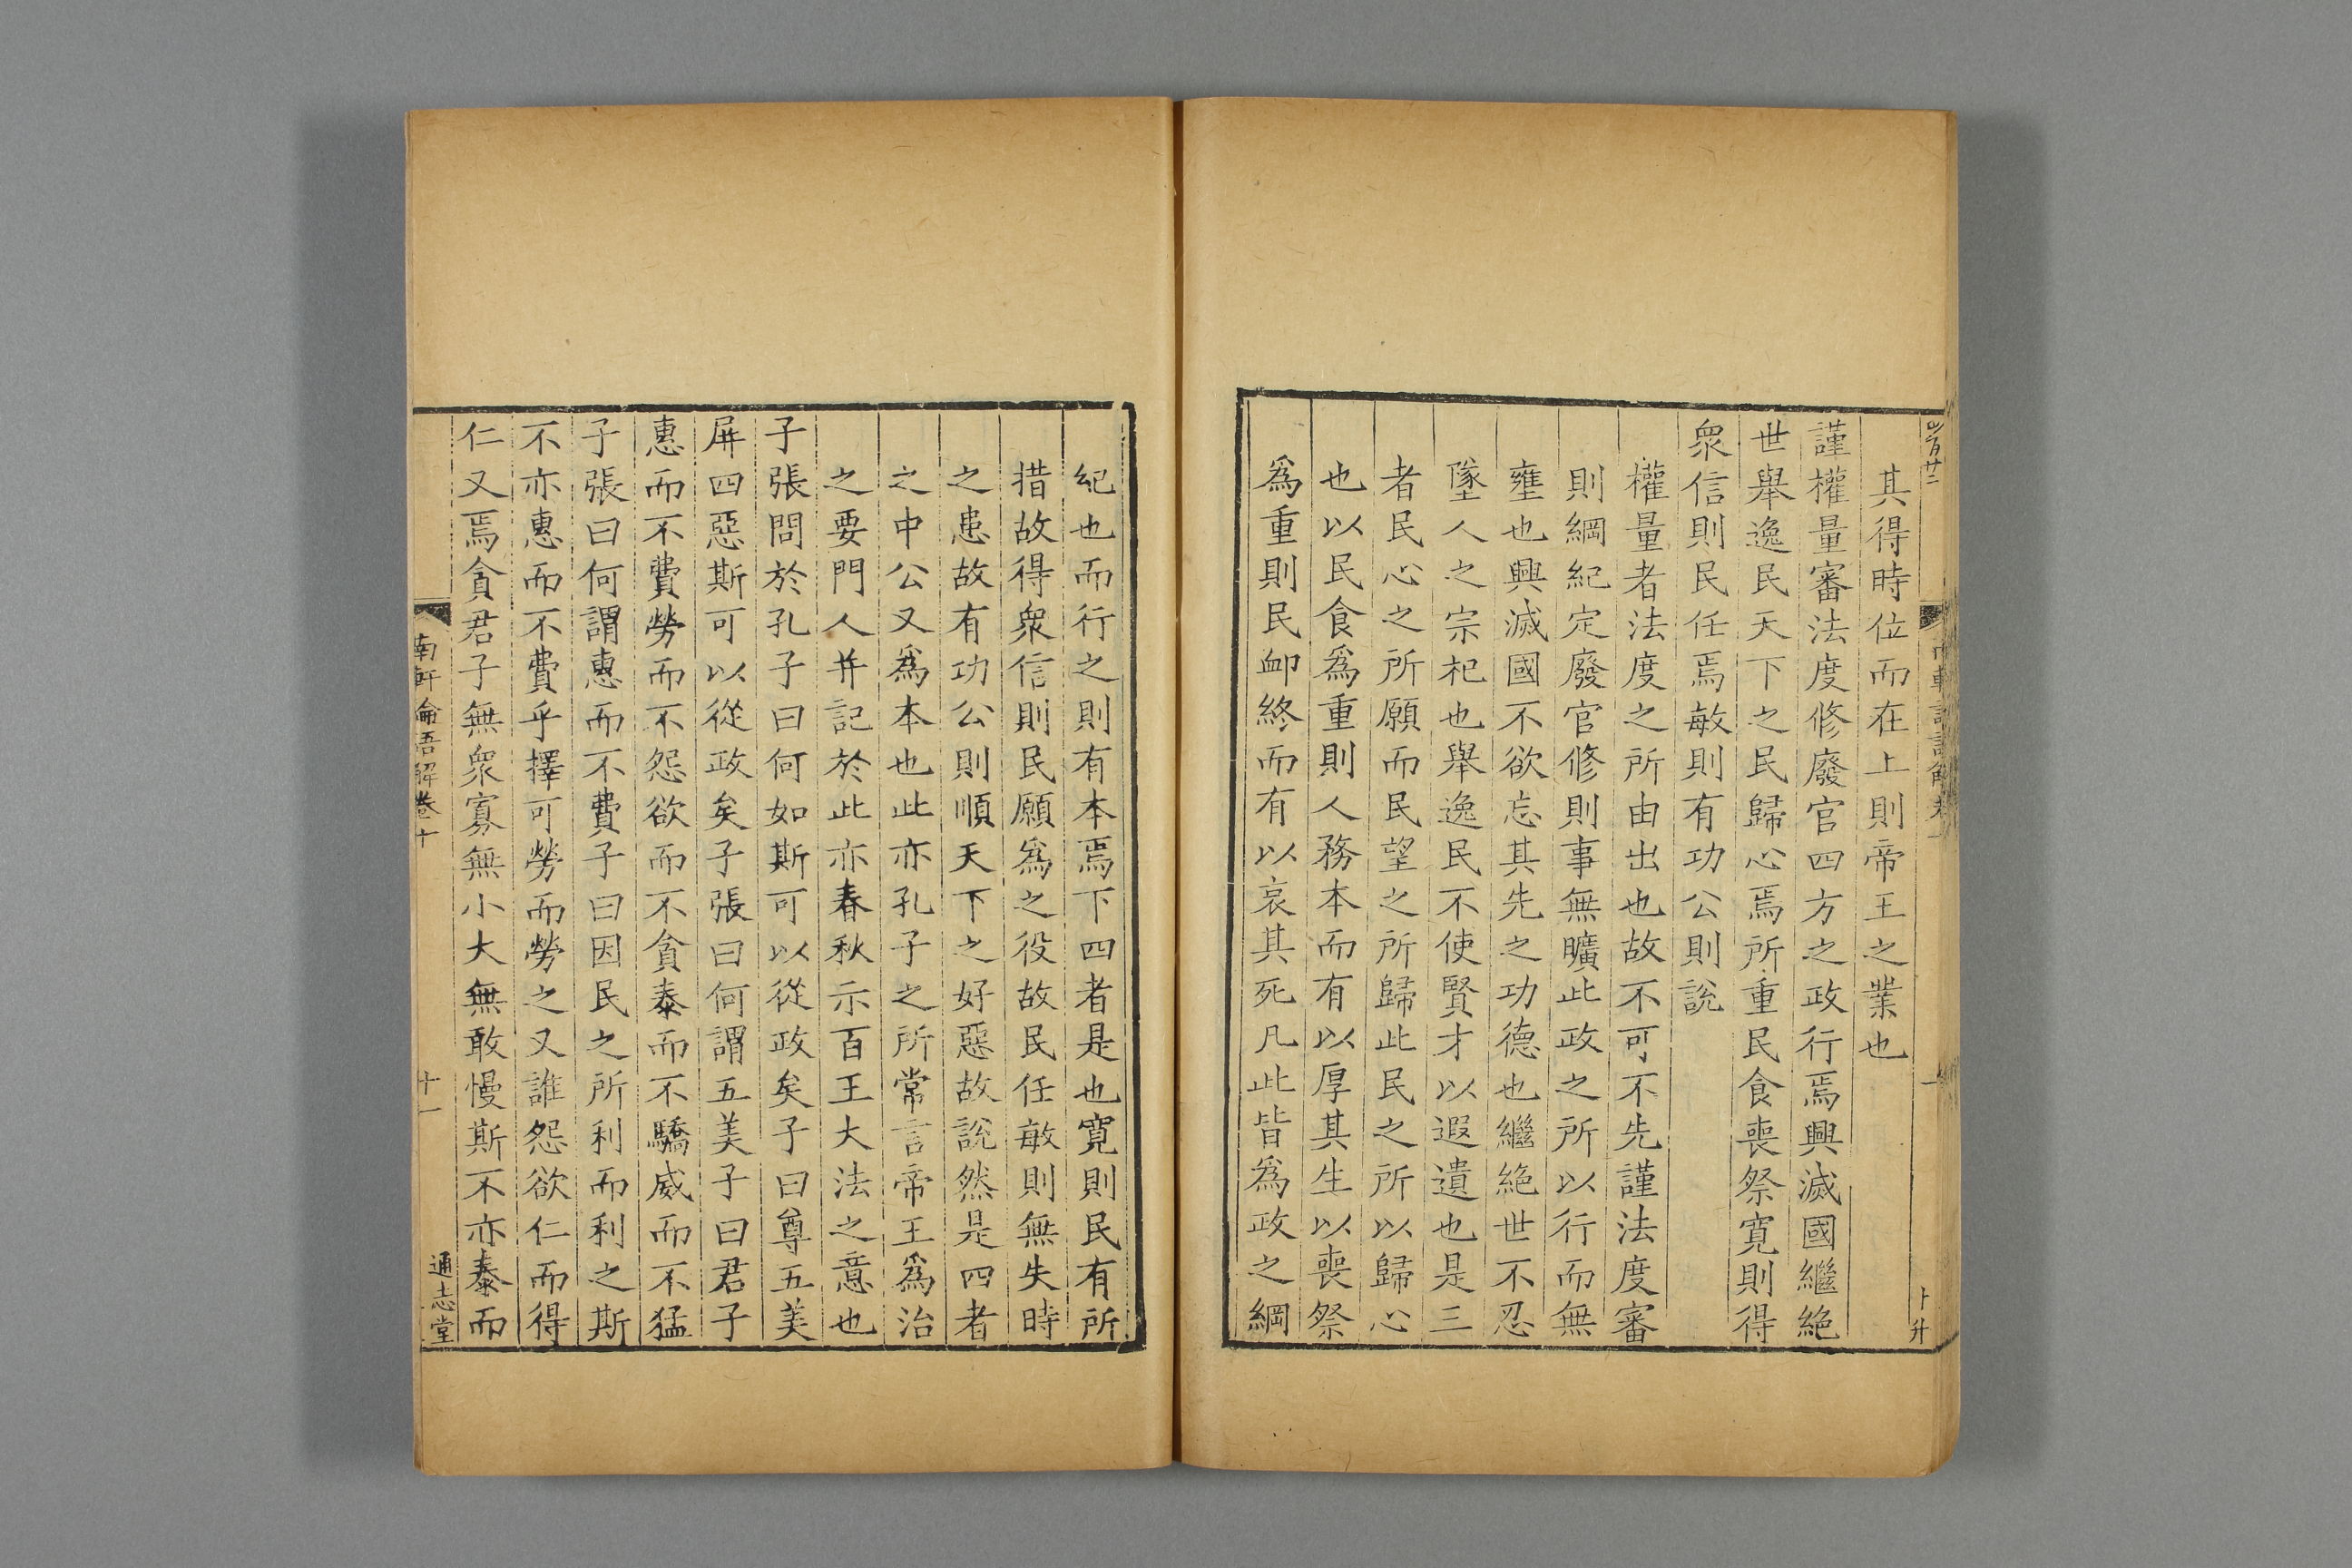 其得時位而在上則帝王之業也
謹權量審法度修廢官四方之政行焉興滅國繼絶
世舉逸民天下之民歸心焉所重民食喪祭寬則得
衆信則民任焉敏則有功公則說
權量者法度之所由出也故不可不先謹法度審
則綱紀定廢官修則事無曠此政之所以行而無
壅也興滅國不欲忘其先之功德也繼絶世不忍
墜人之宗祀也舉逸民不使賢才以遐遺也是三
者民心之所願而民望之所歸此民之所以歸心
也以民食爲重則人務本而有以厚其生以喪祭
爲重則民卹終而有以哀其死凡此皆爲政之綱
紀也而行之則有本焉下四者是也寬則民有所
措故得衆信則民願爲之役故民任敏則無失時
之患故有功公則順天下之好惡故說然是四者
之中公又爲本也此亦孔子之所常言帝王爲治
之要門人并記於此亦春秋示百王大法之意也
子張問於孔子曰何如斯可以從政矣子曰尊五美
屏四惡斯可以從政矣子張曰何謂五美子曰君子
惠而不費勞而不怨欲而不貪泰而不驕威而不猛
子張曰何謂惠而不費子曰因民之所利而利之斯
不亦惠而不費乎擇可勞而勞之又誰怨欲仁而得
仁又焉貪君子無衆寡無小大無敢慢斯不亦泰而
南軒論語解卷十
十一
通志堂